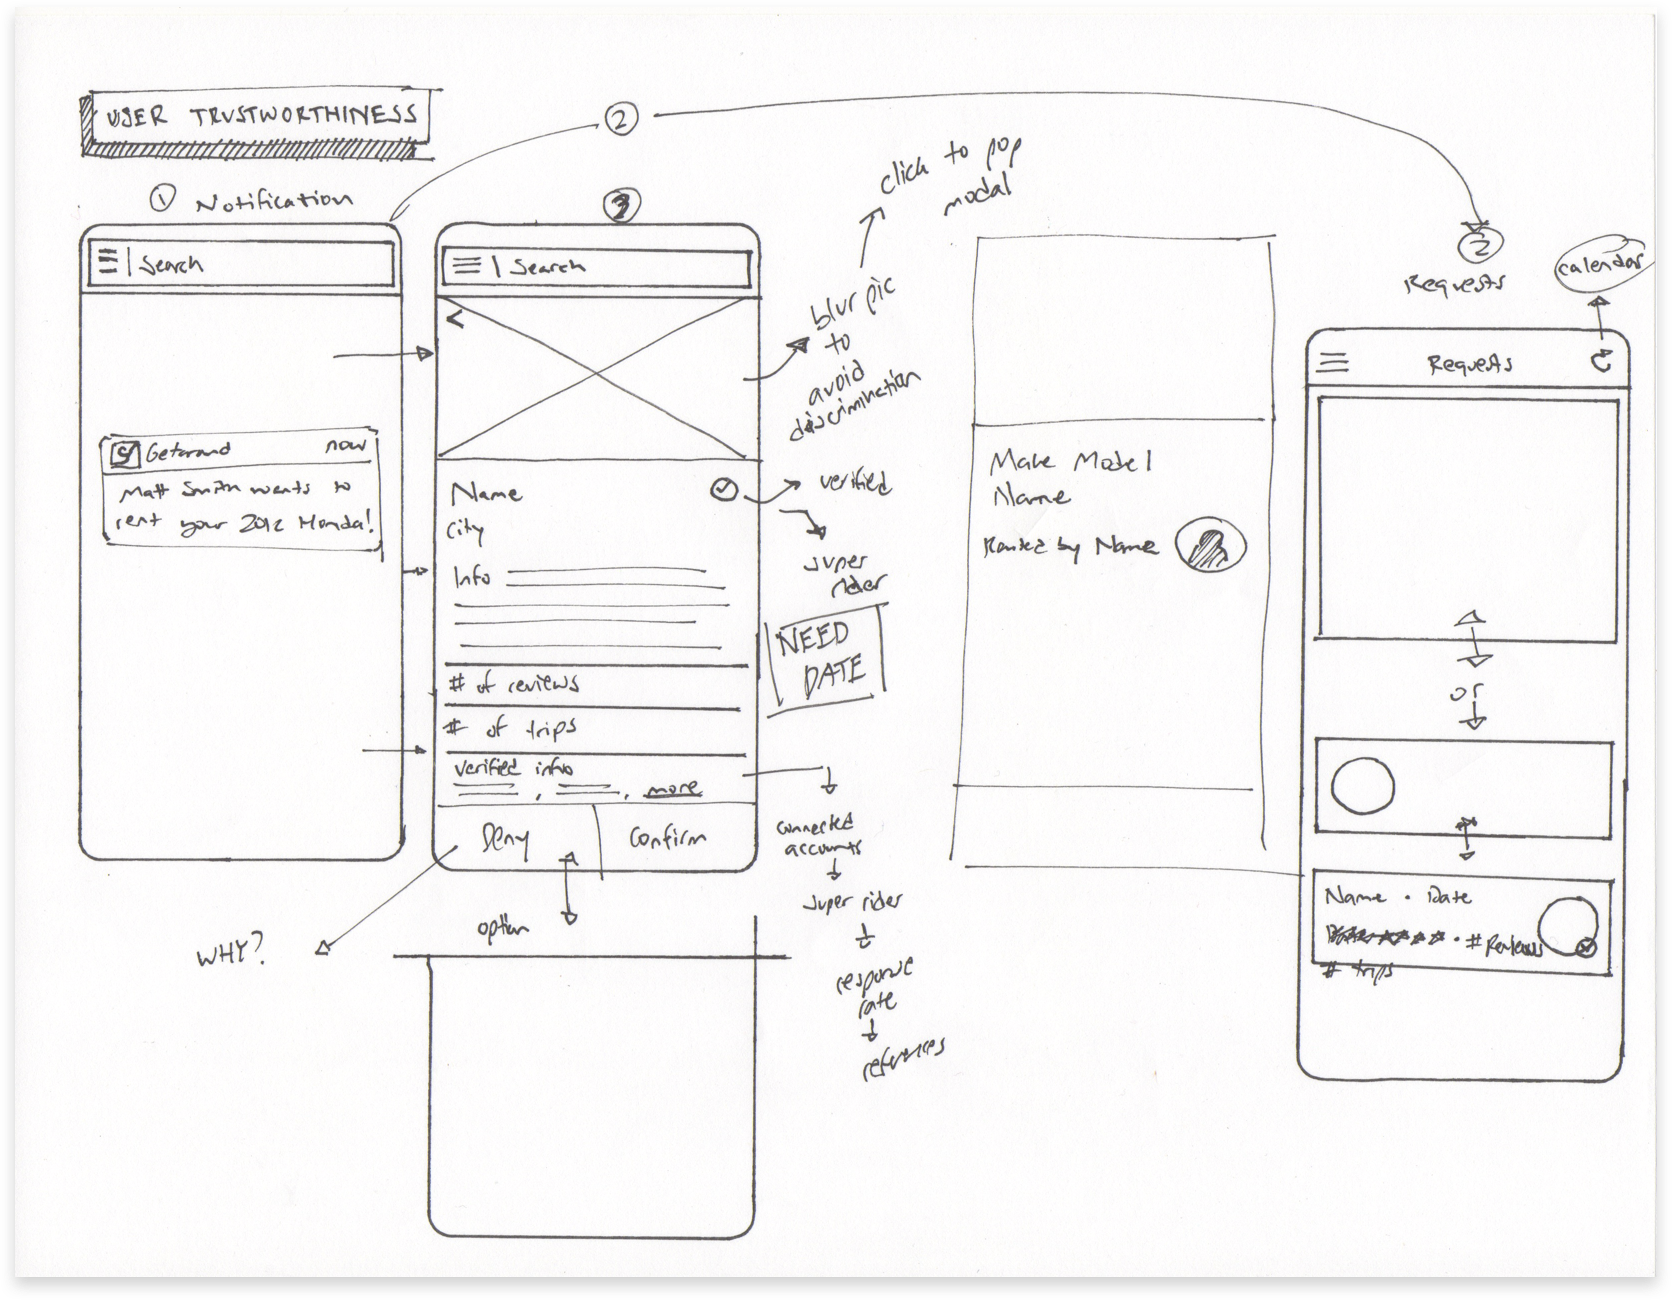 USER TRUSTWORTHINESS
1 Notification
Search
Getaround now
Matt Smith wants to
rent your 2012 Honda!
2
3
Search
<
Name
City
Info
# of reviews
# of trips
Verified info
, , more
Deny Confirm
option
WHY?
click to pop
modal
blur pic
to
avoid
discrimination
verified
super
rider
NEED
DATE
connected
accounts
super rider
response
rate
references
Make Model
Name
by Name
2
Requests
calendar
Requests
or
Name · Date
· # Reviews
# trips